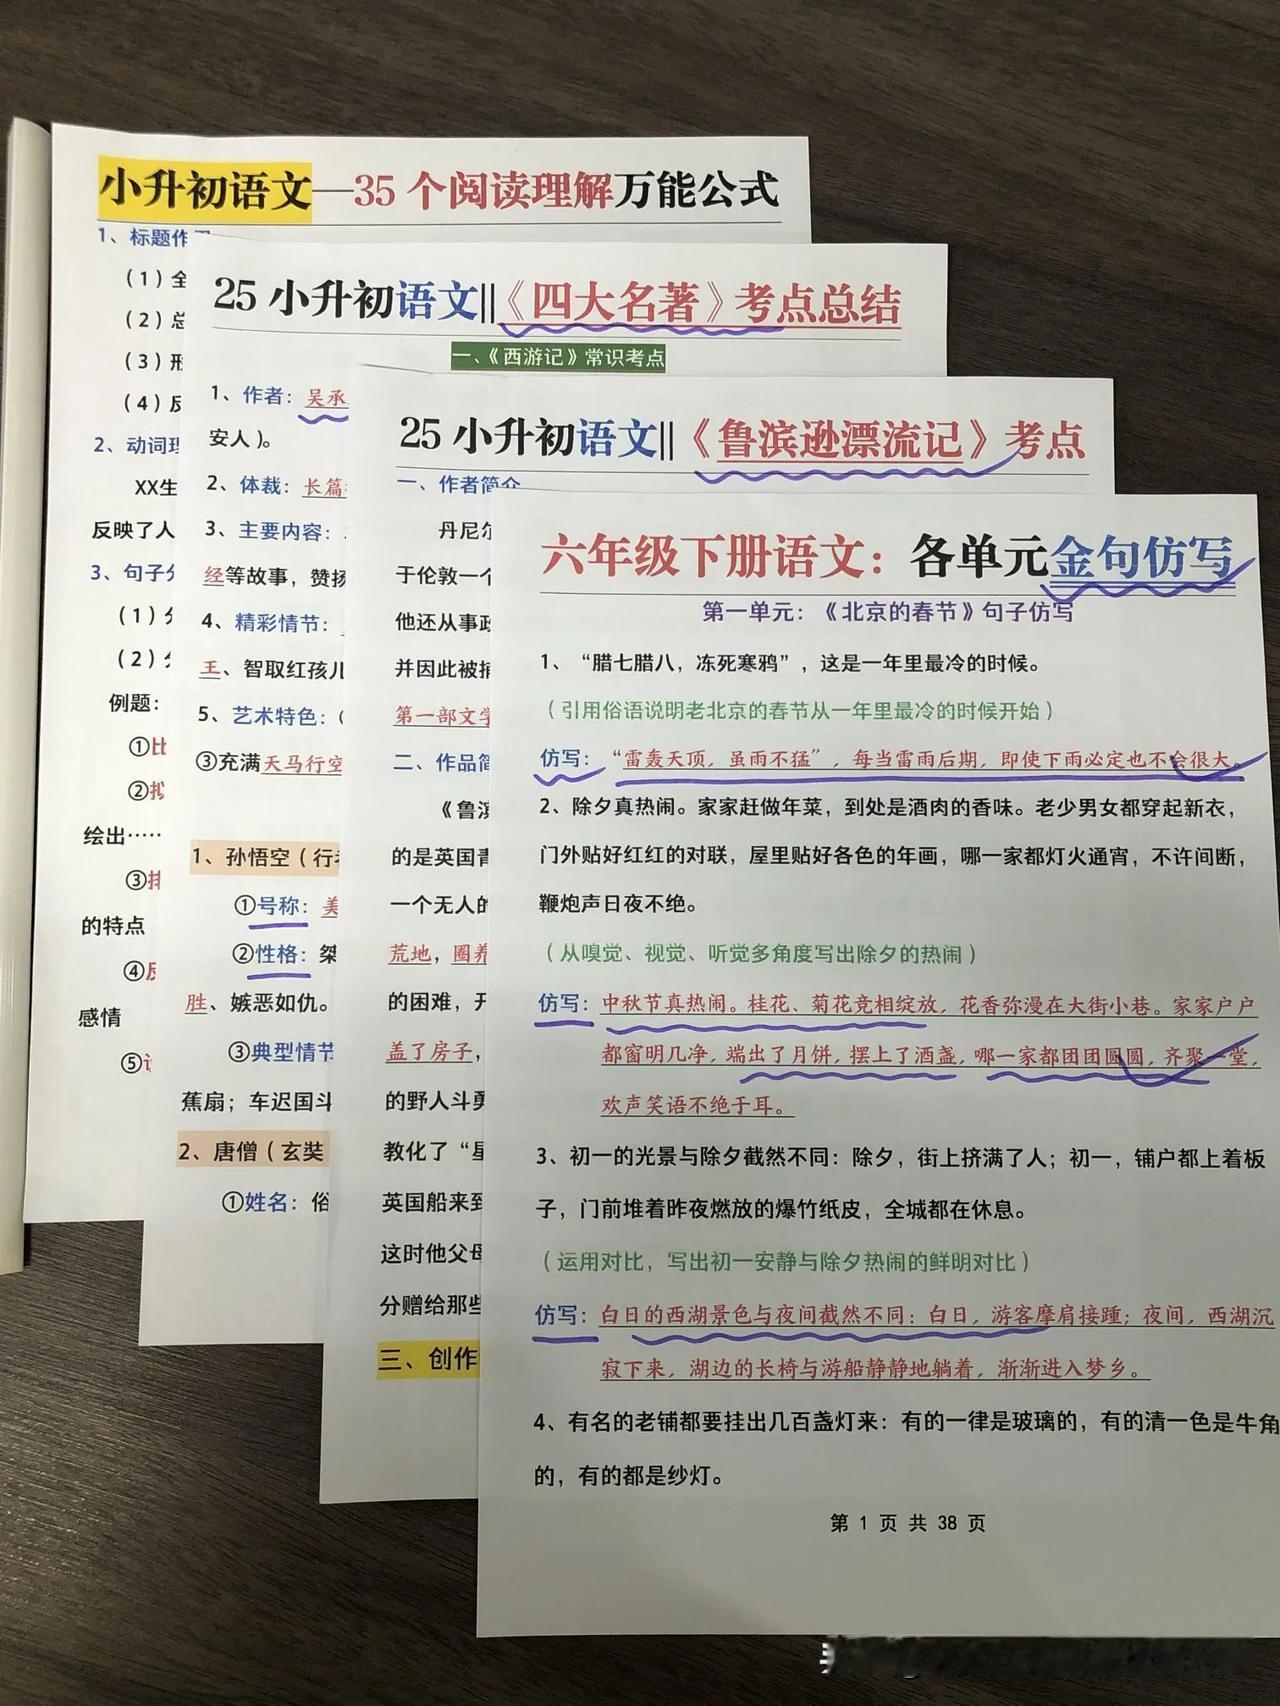 小升初语文—35个阅读理解万能公式
1、标题作
(1)全
(2)总
(3)形
(4)反
2、动词理
XX生
反映了人
3、句子分
(1)分
(2)分
例题：
①比
②拟
绘出……
③排
的特点
④反
感情
⑤设
25小升初语文||《四大名著》考点总结
一、《西游记》常识考点
1、作者：吴承
安人）。
2、体裁：长篇
3、主要内容：
经等故事，赞扬
4、精彩情节：
王、智取红孩儿
5、艺术特色：
③充满天马行空
1、孙悟空（行者
①号称：美
②性格：桀
胜、嫉恶如仇。
③典型情节
蕉扇；车迟国斗
2、唐僧（玄奘
①姓名：俗
25小升初语文||《鲁滨逊漂流记》考点
一、作者简介
丹尼尔
于伦敦一个
他还从事政
并因此被捕
第一部文学
二、作品简
《鲁滨
的是英国青
一个无人的
荒地，圈养
的困难，开
盖了房子，
的野人斗勇
教化了“星
英国船来到
这时他父母
分赠给那些
三、创作
六年级下册语文：各单元金句仿写
第一单元：《北京的春节》句子仿写
1、“腊七腊八，冻死寒鸦”，这是一年里最冷的时候。
（引用俗语说明老北京的春节从一年里最冷的时候开始）
仿写：“雷轰天顶，虽雨不猛”，每当雷雨后期，即使下雨必定也不会很大。
2、除夕真热闹。家家赶做年菜，到处是酒肉的香味。老少男女都穿起新衣，
门外贴好红红的对联，屋里贴好各色的年画，哪一家都灯火通宵，不许间断，
鞭炮声日夜不绝。
（从嗅觉、视觉、听觉多角度写出除夕的热闹）
仿写：中秋节真热闹。桂花、菊花竞相绽放，花香弥漫在大街小巷。家家户户
都窗明几净，端出了月饼，摆上了酒盏，哪一家都团团圆圆，齐聚一堂，
欢声笑语不绝于耳。
3、初一的光景与除夕截然不同：除夕，街上挤满了人；初一，铺户都上着板
子，门前堆着昨夜燃放的爆竹纸皮，全城都在休息。
（运用对比，写出初一安静与除夕热闹的鲜明对比）
仿写：白日的西湖景色与夜间截然不同：白日，游客摩肩接踵；夜间，西湖沉
寂下来，湖边的长椅与游船静静地躺着，渐渐进入梦乡。
4、有名的老铺都要挂出几百盏灯来：有的一律是玻璃的，有的清一色是牛角
的，有的都是纱灯。
第 1 页 共 38 页